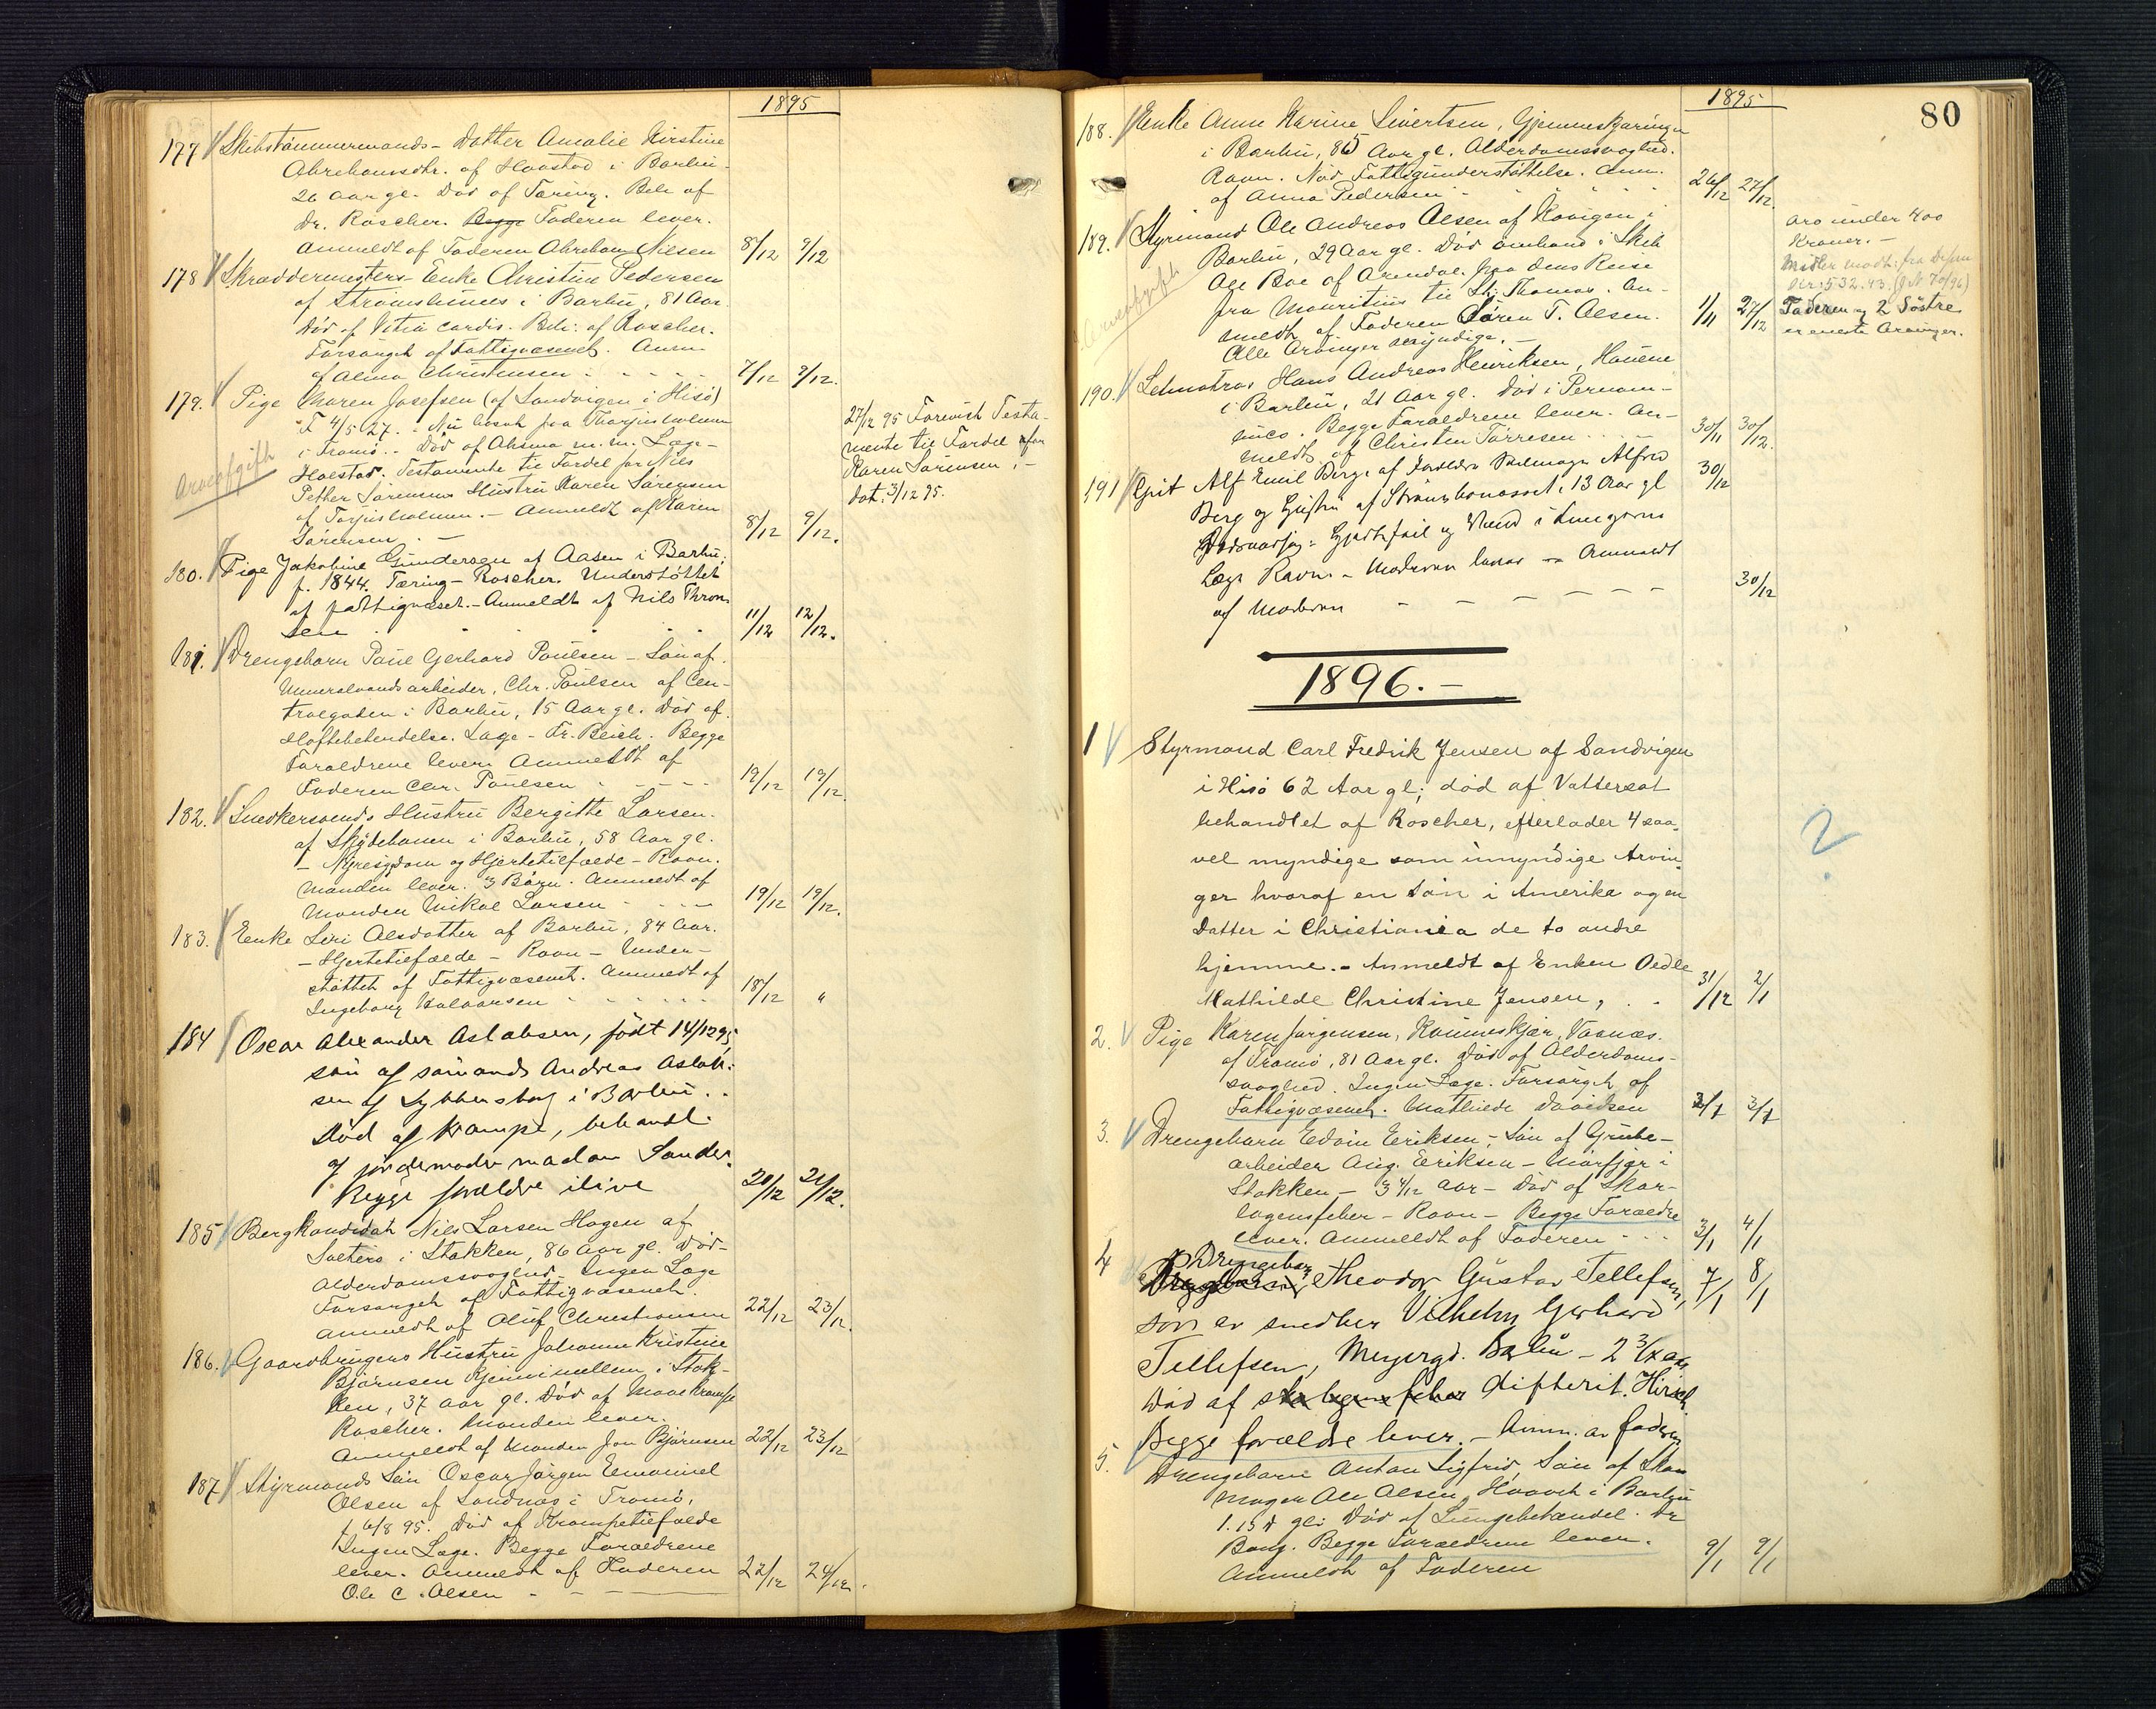 1895
177 Skibstömmermands-Datter Amalie Kirstine
Abrahamsdtr. af Haastad i Barbu
26 Aar gl. Död af Tæring. Beh. af
Dr. Roscher. Begge Faderen lever.
Anmeldt af Faderen Abraham Nilsen 8/12 9/12
178 Skræddermesters Enke Christine Pedersen
af Strömsbunes i Barbu, 81 Aar.
Död af Vitiu cordis. Beh: af Roscher.
Forsörget af Fattigvæsenet. Anm.
af Alma Christensen - - - - - 7/12 9/12.
179. Pige Maren Josefsen (af Sandvigen i Hisö)
F 4/5 27. - Nu bosat paa Torjusholmen
i Tromö. - Död af Asthma m.m. Læge-
Hoelstad. Testamente til Fordel for Nils
Petter Sörensens Hustru Karen Sörensen
af Torjusholmen. - Anmeldt af Karen
Sörensen - 8/12 9/12.
Arveafgift
27/12 95 Forevist Testa-
mente til Fordel for
Karen Sörensen, -
dat. 3/12 95.
180. Pige Jakobine Gundersen af Aasen i Barbu;
f. 1844. Tæring - Roscher. Understöttet
af fattigvæset. - Anmeldt af Nils Thron-
sen 11/12 12/12.
181. Drengebarn Paul Gerhard Paulsen - Sön af
Mineralvandsarbeider, Chr. Paulsen af Cen-
tralgaden i Barbu, 15 Aar gl. Död af
Hoftebetendelse. Læge - Fr. Beich. Begge
Forældrene lever. Anmeldt af
Faderen Chr. Paulsen - - - - 19/12 19/12.
182. Snedkersvends Hustru Bergitte Larsen
af Skydebanen i Barbu, 58 Aar gl.
- Nyresygdom og Hjertetilfælde - Ravn.
Manden lever. 3 Börn. Anmeldt af
Manden Mikal Larsen - - - 19/12 19/12.
183. Enke Siri Olsdatter af Barbu, 84 Aar.
- Hjertetilfælde - Ravn - Under-
stöttet af Fattigvæsenet. Anmeldt af
Ingeborg Halvorsen - - - - - 18/12 "
184 Oscar Alexander Aslaksen, född 14/12 95,
sön af sömands Andreas Aslak-
sen af Lykkensborg i Barbu.
Död af Krampe, behandl.
af jordemoder madam Sander.
Begge forældre ilive 20/12 21/12.
185 Bergkandidat Nils Larsen Hagen af
Salterö i Stokken, 86 Aar gl. Död -
Alderdomssvaghed. Ingen Læge
Forsörget af Fattigvæsenet.
Anmeldt af Oluf Christiansen 22/12 23/12.
186. Gaardbrugers Hustru Johanne Kristine
Björnsen Kjennimellem i Stok-
ken, 37 Aar gl. Död af Mavekrampe
Roscher. Manden lever.
Anmeldt af Manden Jon Björnsen 22/12 23/12
187 Styrmands Sön Oscar Jörgen Emanuel
Olsen af Sandnæs i Tromö,
f 6/8 95. Död af Krampetilfælde
Ingen Læge. Begge Forældrene
lever. Anmeldt af Faderen
Ole C. Olsen - - 22/12 24/12.
1895
80
188. Enke Anne Karine Sivertsen, Gjenneskjæringen
i Barbu, 85 Aar gl. Alderdomssvaghed.
Ravn. Nöd Fattigunderstöttelse. Anm.
af Anna Pedersen - - - - 26/12 27/12.
189. Styrmand Ole Andreas Olsen af Kovigen i
Barbu, 29 Aar gl. Död ombord i Skib
Ole Boe af Arendal paa dens Reise
fra Mauritius til St. Thomas. An-
meldt af Faderen Sören T. Olsen. 1/11 27/12
Alle Arvinger myndige. -
Arveafgift
Arv under 400
Kroner. -
Midler modt: fra
Kr: 532.43. (J.N. 70/96)
Faderen og 2 Söstre
er eneste Arvinger.
190. Letmatros Hans Andreas Henriksen, Havene
i Barbu, 21 Aar gl. Död i Pernam-
buco. Begge Forældrene lever. An-
meldt af Christen Törresen - - - 30/11 30/12.
191 Gut Alf Emil Berg af Forældre Skomager Alfred
Berg og Hustru af Strömsbonæsset, 13 Aar gl
Dödsaarsag: Hjertefeil og Vand i Lungerne
Læge Ravn - Moderen lever - Anmeldt
af Moderen - - - - - - 30/12 30/12
1896.-
1 Styrmand Carl Fredrik Jensen af Sandvigen
i Hisö 62 Aar gl; död af Vattersot
behandlet af Roscher, efterlader 4 saa-
vel myndige som umyndige Arvin-
ger hvoraf en sön i Amerika og en
Datter i Christiania de to andre
hjemme. - Anmeldt af Enken Oedle
Mathilde Christine Jensen, . . 31/12 2/1
?
2. Pige Karen Jörgensen, Ravneskjær, Vasnæs
af Tromö, 81 Aar gl. Död af Alderdoms-
svaghed. Ingen Læge. Forsörget af
Fattigvæsenet. Mathilde Davidsen 3/1 3/1
3. Drengebarn Edvin Eriksen - Sön af Grube-
arbeider Aug. Eriksen - Mörfjær i
Stokken - 3 4/12 Aar - Död af Skar-
lagensfeber - Ravn - Begge Forældre
lever. Anmeldt af Faderen - - - 3/1 4/1
4 Drengebarn Theodor Gustav Tellefsen, 7/1 8/1
sön av snedker Vilhelm Gerhard
Tellefsen, Meyergd. Barbu - 2 3/12 aar
Död af skarlagensfeber difterit. Hirsch
Begge forældre lever. - Anm. av faderen
5. Drengebarn Anton Sigfrid, Sön af Sko-
mager Ole Olsen, Haavet i Barbu
1.15 gl: Död af Lungebetændel. Dr
Bang. Begge Forældrene lever.
Anmeldt af Faderen 9/1 9/1